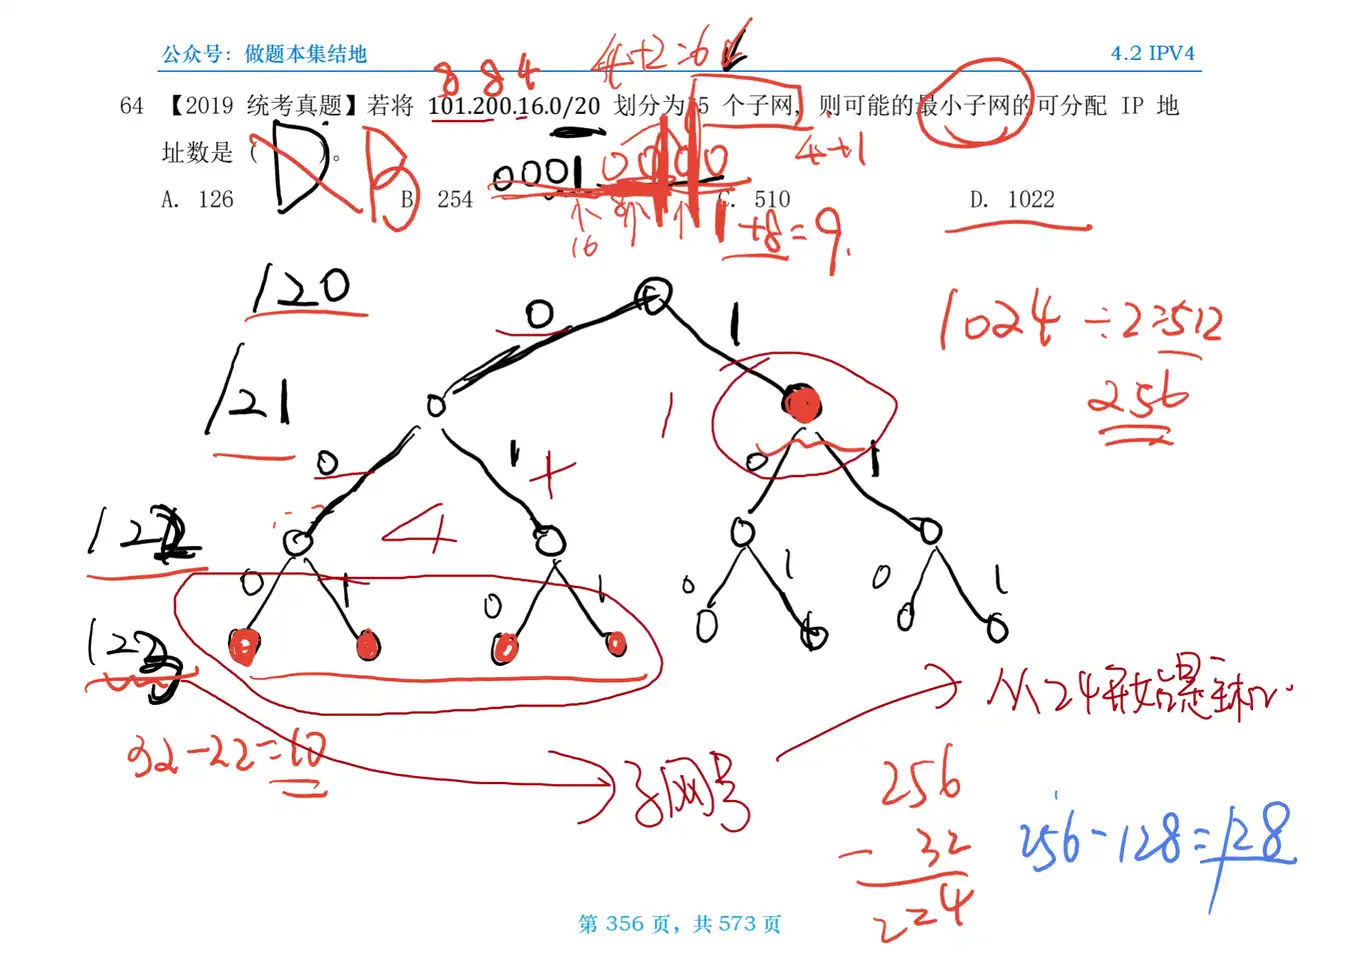 公众号：做题本集结地
4.2 IPV4
4+2=6
8 8 4
64 【2019 统考真题】若将 101.200.16.0/20 划分为 5 个子网，则可能的最小子网的可分配 IP 地
址数是（ ）。
D B
0001 0000
4+1
A. 126 B. 254 C. 510 D. 1022
16 8
1+8=9
/20
0 1
1024÷2=512
256
/21
1
0 1 0 1
4
/22
0 1 0 1 0 1 0 1
/23
从24开始是主机
32-22=10
子网号
256
- 32
224
256-128=128
第 356 页，共 573 页